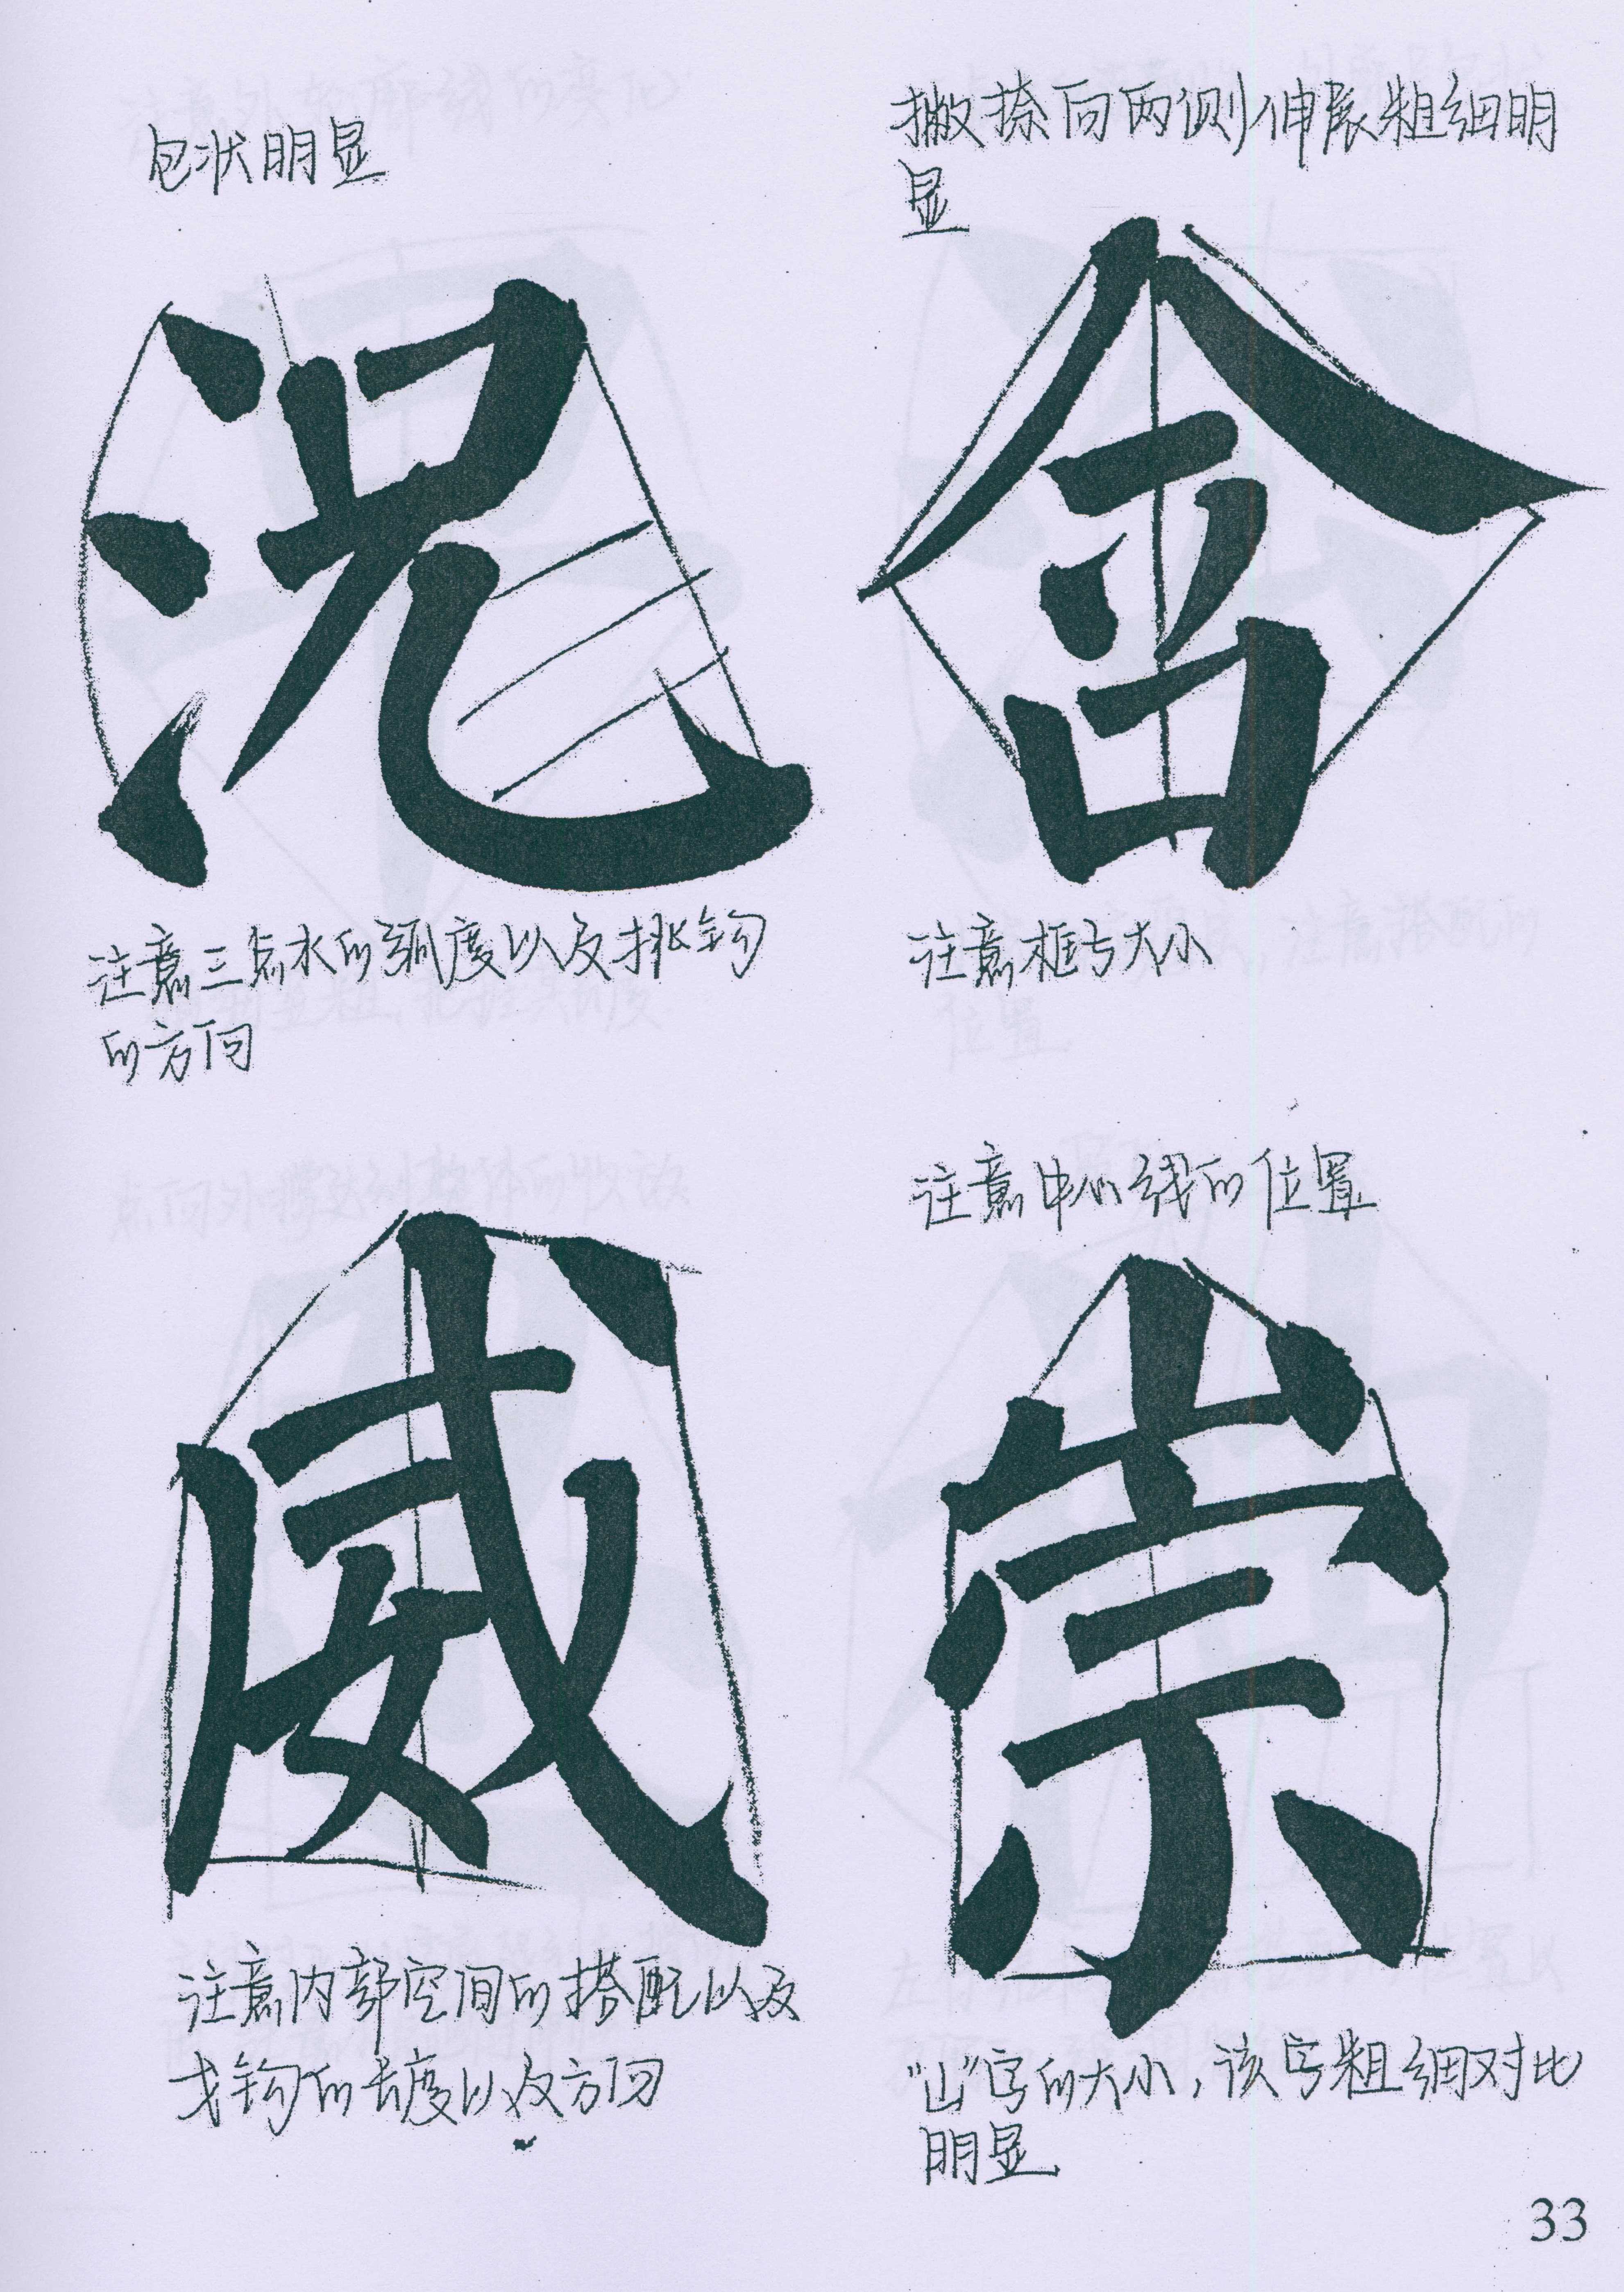 包状明显
況
注意三点水的弧度以及挑钩
的方向
撇捺向两侧伸展粗细明
显
注意框与大小
威
注意内部空间的搭配以及
戈钩的长度以及方向
注意中心线的位置
崇
“山”字的大小，该字粗细对比
明显
33